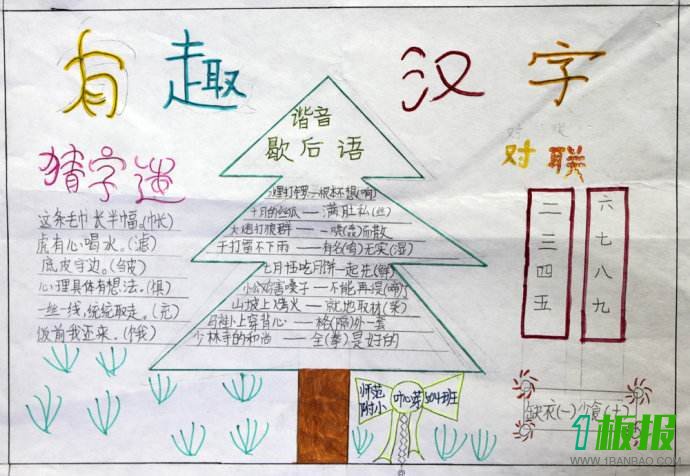 有趣汉字
猜字迷
这条毛巾长半幅。(帐)
虎有心喝水。(滤)
底皮守边。(皱)
心理具体有想法。(惧)
一丝一线,统统取走。(充)
饭前我还来。(饿)
谐音
歇后语
十月的丝瓜——满肚私(丝)
大炮打狼群——一哄(轰)而散
干打雷不下雨——有名(鸣)无实(湿)
七月恬吃月饼一起先(鲜)
小公鸡害嗓子——不能再提(啼)
山坡上烤火——就地取材(柴)
马褂上穿背心——格(隔)外一套
少林寺的和尚——全(拳)是好的
对联
二三四五
六七八九
缺衣(一)少食(十)
师范附小
叶心芽
504班
1板报
WWW.1BANBAO.COM